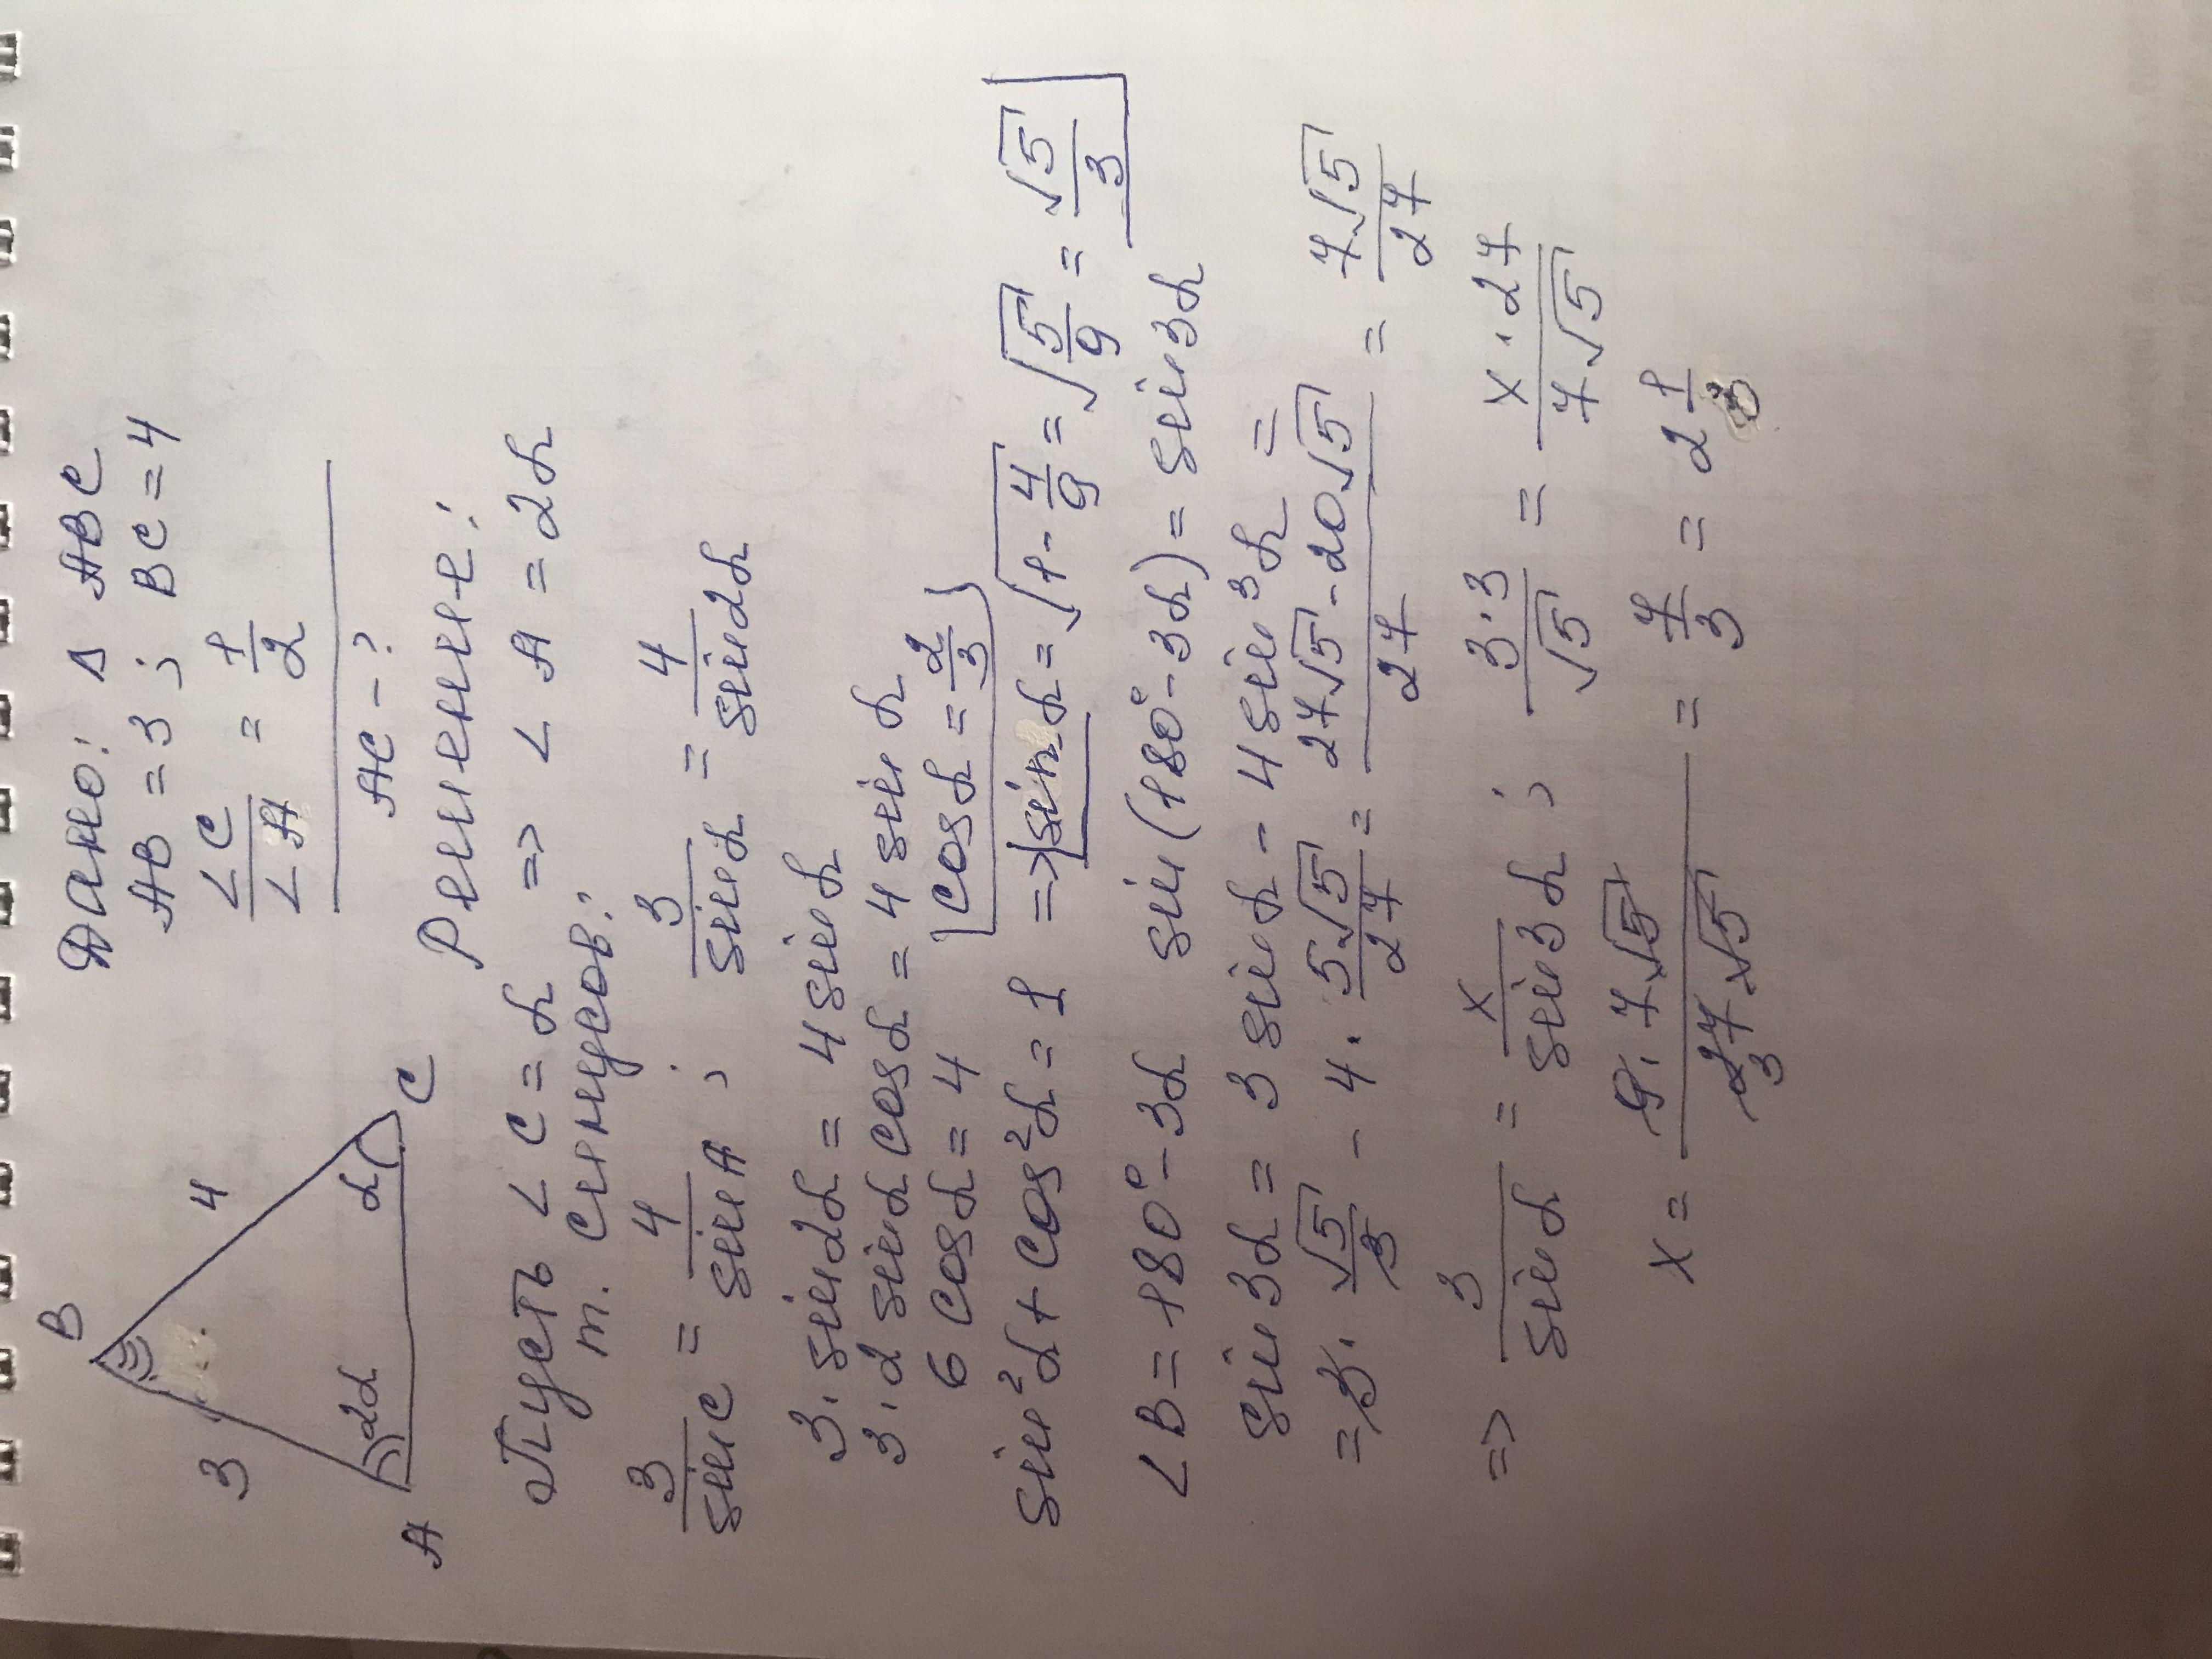 Дано: Δ ABC
AB = 3 ; BC = 4
∠C / ∠A = 1/2
AC - ?
B
3
4
2α
α
A
C
Решение:
Пусть ∠C = α => ∠A = 2α
т. синусов:
3/sin C = 4/sin A ; 3/sin α = 4/sin 2α
3 · sin 2α = 4 sin α
3 · 2 sin α cos α = 4 sin α
6 cos α = 4 cos α = 2/3
sin² α + cos² α = 1 => sin α = √(1 - 4/9) = √(5/9) = √5/3
∠B = 180° - 3α sin (180° - 3α) = sin 3α
sin 3α = 3 sin α - 4 sin³ α =
= 3 · √5/3 - 4 · 5√5/27 = (27√5 - 20√5)/27 = 7√5/27
=> 3/sin α = x/sin 3α ; 3·3/√5 = x·27/7√5
x = 9 · 7√5 / 27 · √5 = 7/3 = 2 1/3
3